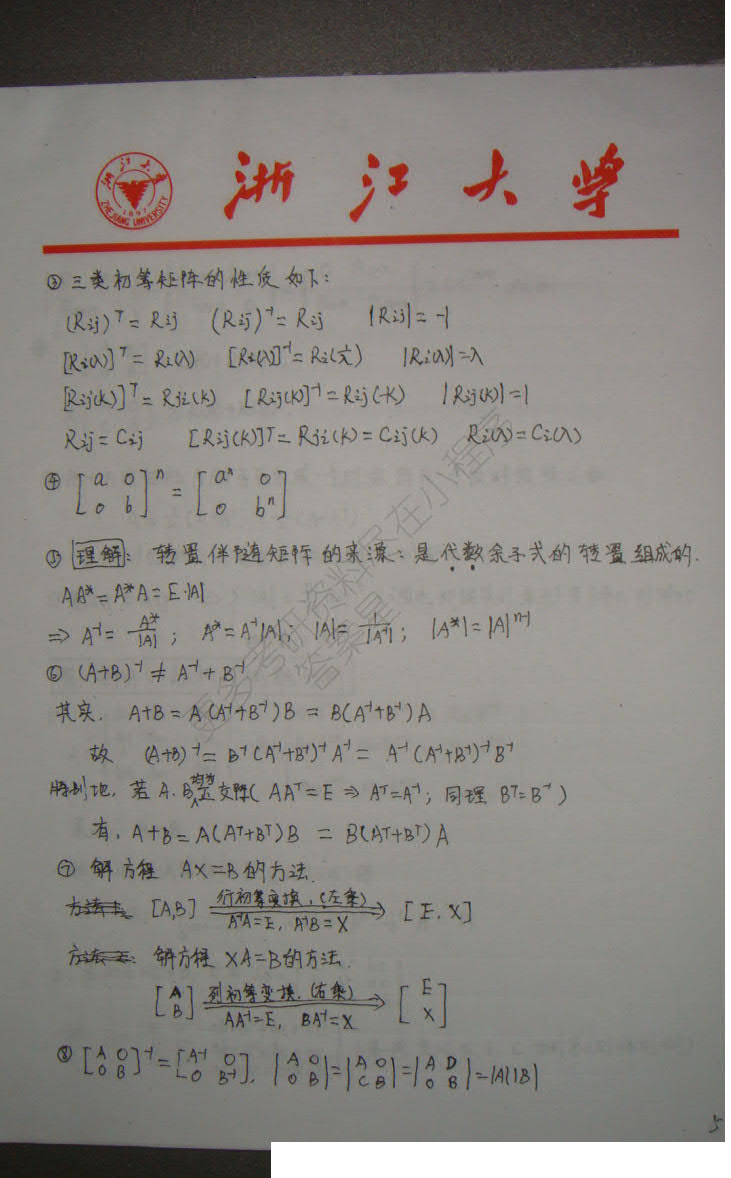 浙江大学
浙江大学
ZHEJIANG UNIVERSITY
1897
③ 三类初等矩阵的性质如下:
(Rij)ᵀ = Rij (Rij)⁻¹ = Rij |Rij| = -1
[Ri(λ)]ᵀ = Ri(λ) [Ri(λ)]⁻¹ = Ri(1/λ) |Ri(λ)| = λ
[Rij(k)]ᵀ = Rji(k) [Rij(k)]⁻¹ = Rij(-k) |Rij(k)| = 1
Rij = Cij [Rij(k)]ᵀ = Rji(k) = Cij(k) Ri(λ) = Ci(λ)
④ [a 0; 0 b]ⁿ = [aⁿ 0; 0 bⁿ]
⑤ 理解: 转置伴随矩阵的来源: 是代数余子式的转置组成的.
AA* = A*A = E·|A|
⇒ A⁻¹ = A*/|A| ; A* = A⁻¹|A| ; |A| = 1/|A⁻¹| ; |A*| = |A|ⁿ⁻¹
⑥ (A+B)⁻¹ ≠ A⁻¹ + B⁻¹
其实, A+B = A(A⁻¹+B⁻¹)B = B(A⁻¹+B⁻¹)A
故 (A+B)⁻¹ = B⁻¹(A⁻¹+B⁻¹)⁻¹A⁻¹ = A⁻¹(A⁻¹+B⁻¹)⁻¹B⁻¹
特别地, 若A.B均为正交阵( AAᵀ = E ⇒ Aᵀ = A⁻¹; 同理 Bᵀ = B⁻¹ )
有, A+B = A(Aᵀ+Bᵀ)B = B(Aᵀ+Bᵀ)A
⑦ 解方程 AX=B的方法.
方法一: [A,B] 行初等变换,(左乘) A⁻¹A=E, A⁻¹B=X → [E, X]
方法二: 解方程 XA=B的方法.
[A; B] 列初等变换.(右乘) AA⁻¹=E, BA⁻¹=X → [E; X]
⑧ [A 0; 0 B]⁻¹ = [A⁻¹ 0; 0 B⁻¹], |A 0; 0 B| = |A 0; C B| = |A D; 0 B| = |A||B|
5
更多考研资料尽在小程序
答案星